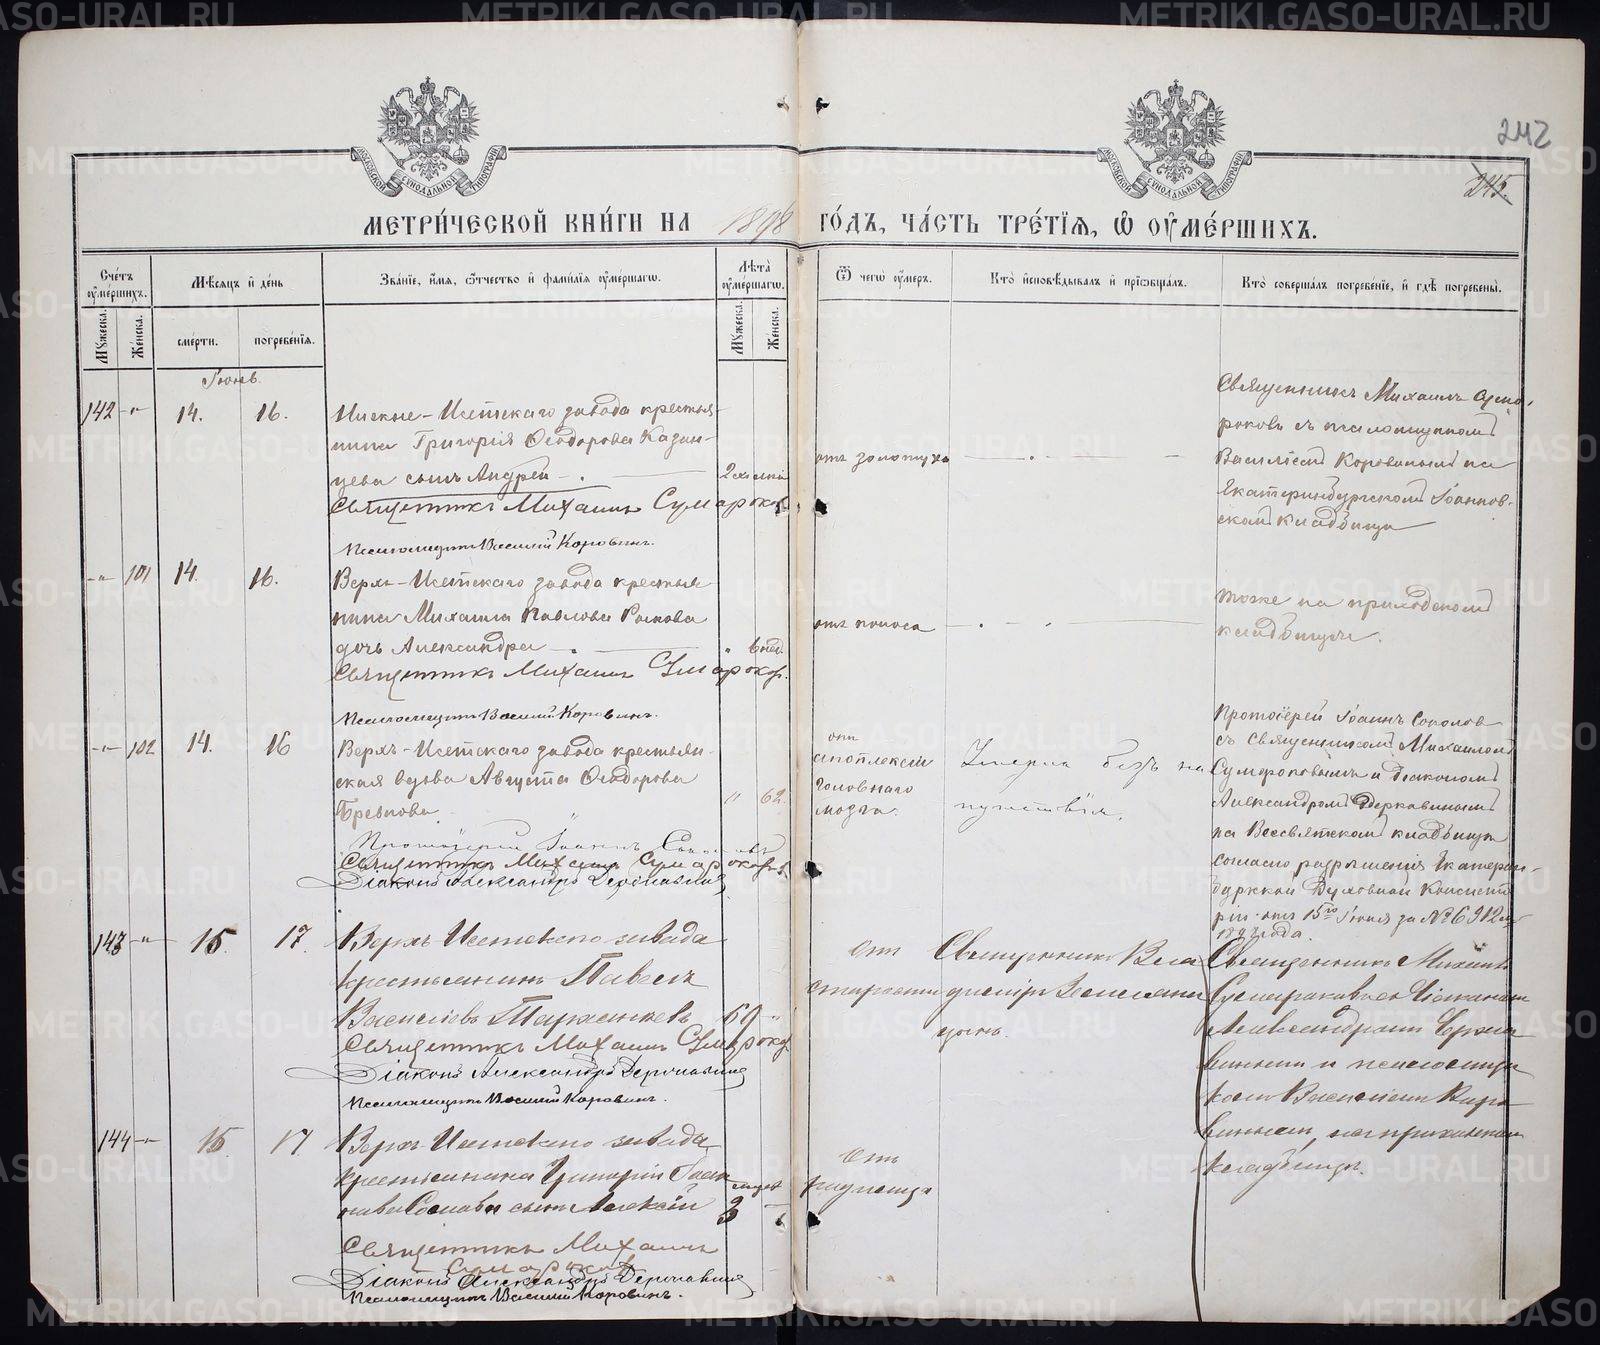 242
245.
МЕТРИ́ЧЕСКОЙ КНИ́ГИ НА 1898 ГО́ДЪ, ЧА́СТЬ ТРЕ́ТІѦ, Ѡ҆ ОУ҆МЕ́РШИХЪ.
Сче́тъ оу҆ме́ршихъ.
Мѣ́сяцъ и҆ де́нь
Зва́ніе, и҆́мя, ѻ҆́тчество и҆ фами́лія оу҆ме́ршагѡ.
Лѣ́та оу҆ме́ршагѡ.
Ѿ чегѡ̀ оу҆́меръ.
Кто̀ и҆сповѣ́дывалъ и҆ прїѡбща́лъ.
Кто̀ соверша́лъ погребе́ніе, и҆ гдѣ̀ погребены̀.
Му́жеска.
Же́нска.
сме́рти.
погребе́нія.
Му́жеска.
Же́нска.
Іюнь.
142 -"- 14. 16.
Нижне-Исетскаго завода крестья-
нина Григорія Ѳеодорова Казан-
цева сынъ Андрей
Священникъ Михаилъ Сумароковъ
Псаломщикъ Василій Коровинъ.
отъ золотухи
Священникъ Михаилъ Сума-
роковъ съ псаломщикомъ
Василіемъ Коровинымъ на
Екатеринбургскомъ Іоаннов-
скомъ кладбищѣ
-"- 101 14. 16.
Верхъ-Исетскаго завода крестья
нина Михаила Павлова
дочь Александра
" 6 нед.
Священникъ Михаилъ Сумароков.
Псаломщикъ Василій Коровинъ.
отъ поноса
тоже на приходскомъ
кладбищѣ.
-"- 102 14. 16
Верхъ-Исетскаго завода крестьян-
ская вдова Августа Ѳеодорова
" 62.
Протоіерей Іоаннъ Соколовъ
Священникъ Михаилъ Сумароковъ
Діаконъ Александръ Державинъ
отъ
апоплексіи
головнаго
мозга.
Умерла безъ на
путствія.
Протоіерей Іоаннъ Соколовъ
съ Священникомъ Михаиломъ
Сумароковымъ и діакономъ
Александромъ Державинымъ
на Всесвятскомъ кладбищѣ
согласно разрѣшенія Екатерин-
бургской Духовной Консисто
ріи отъ 15го Іюня за № 6912
1898 года.
143 -"- 15. 17.
Верхъ Исетскаго завода
крестьянинъ Павелъ
Василіевъ
69 "
Священникъ Михаилъ Сумароков
Діаконъ Александръ Державинъ
Псаломщикъ Василій Коровинъ.
Отъ
старости
Священникъ Вла
диміръ Земляни
цынъ.
Священникъ Михаилъ
Сумароковъ съ діакономъ
Александромъ Держа
винымъ и псаломщи
комъ Василіемъ Коро
винымъ, на приходскомъ
кладбищѣ.
144 -"- 15. 17
Верхъ Исетскаго завода
крестьянина Григорія
сынъ Алексій
3
Священникъ Михаилъ
Сумароковъ
Діаконъ Александръ Державинъ
Псаломщикъ Василій Коровинъ.
Отъ
родимца